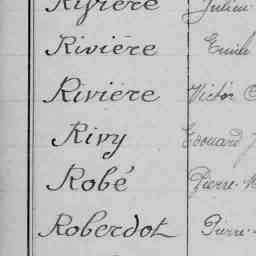 Rivière Julien
Rivière Emile
Rivière Victor
Rivy Edouard
Robé Pierre
Roberdot Pierre